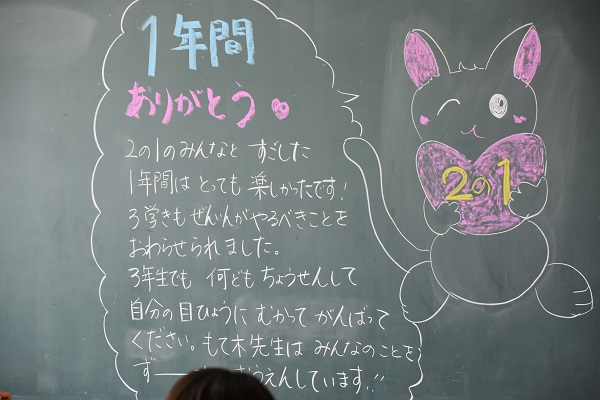 1年間
ありがとう
2の1のみんなと すごした
1年間は とっても 楽しかったです!
3学きも ぜんいんがやるべきことを
おわらせられました。
3年生でも 何ども ちょうせんして
自分の目ひょうに むかって がんばって
ください。もて木先生は みんなのことを
ず おうえんしています!!
2の1